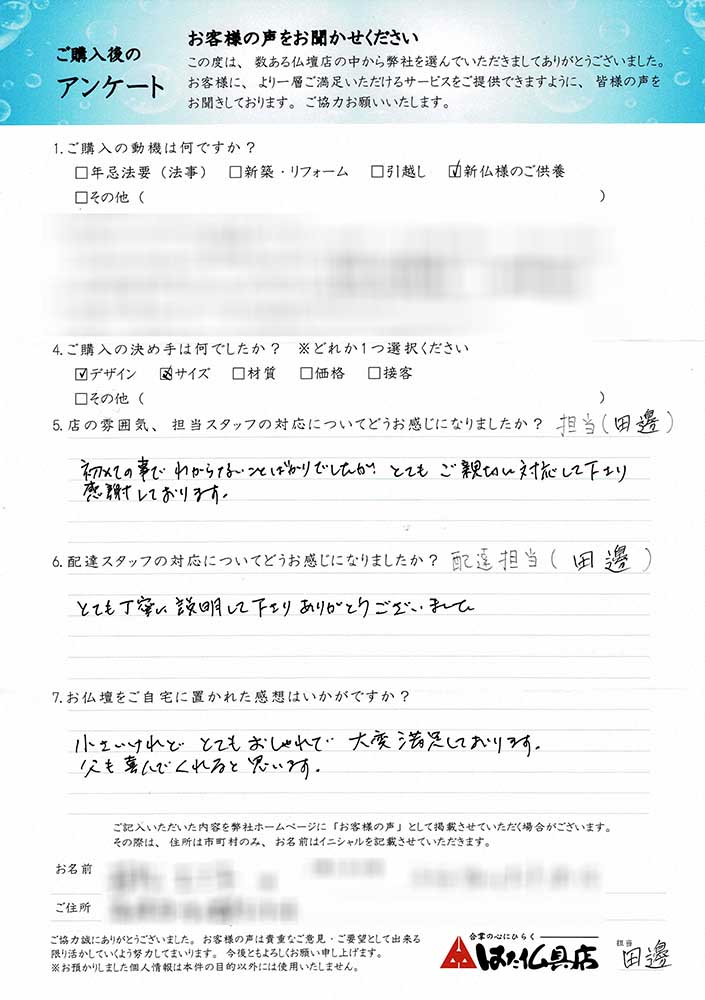 ご購入後の
アンケート
お客様の声をお聞かせください
この度は、数ある仏壇店の中から弊社を選んでいただきましてありがとうございました。
お客様に、より一層ご満足いただけるサービスをご提供できますように、皆様の声を
お聞きしております。ご協力お願いいたします。
1.ご購入の動機は何ですか？
□年忌法要（法事） □新築・リフォーム □引越し ☑新仏様のご供養
□その他（ ）
4.ご購入の決め手は何でしたか？ ※どれか1つ選択ください
☑デザイン ☑サイズ □材質 □価格 □接客
□その他（ ）
5.店の雰囲気、担当スタッフの対応についてどうお感じになりましたか？ 担当（田邊）
初めての事でわからないことばかりでしたが、とてもご親切に対応して下さり
感謝しております。
6.配達スタッフの対応についてどうお感じになりましたか？ 配達担当（田邊）
とても丁寧に説明して下さりありがとうございました
7.お仏壇をご自宅に置かれた感想はいかがですか？
小さいけれどとてもおしゃれで大変満足しております。
父も喜んでくれると思います。
ご記入いただいた内容を弊社ホームページに「お客様の声」として掲載させていただく場合がございます。
その際は、住所は市町村のみ、お名前はイニシャルを記載させていただきます。
お名前
ご住所
ご協力誠にありがとうございました。お客様の声は貴重なご意見・ご要望として出来る
限り活かしていくよう努力してまいります。今後ともよろしくお願い申し上げます。
※お預かりしました個人情報は本件の目的以外には使用いたしません。
合掌の心にひらく
はた仏具店
担当 田邊